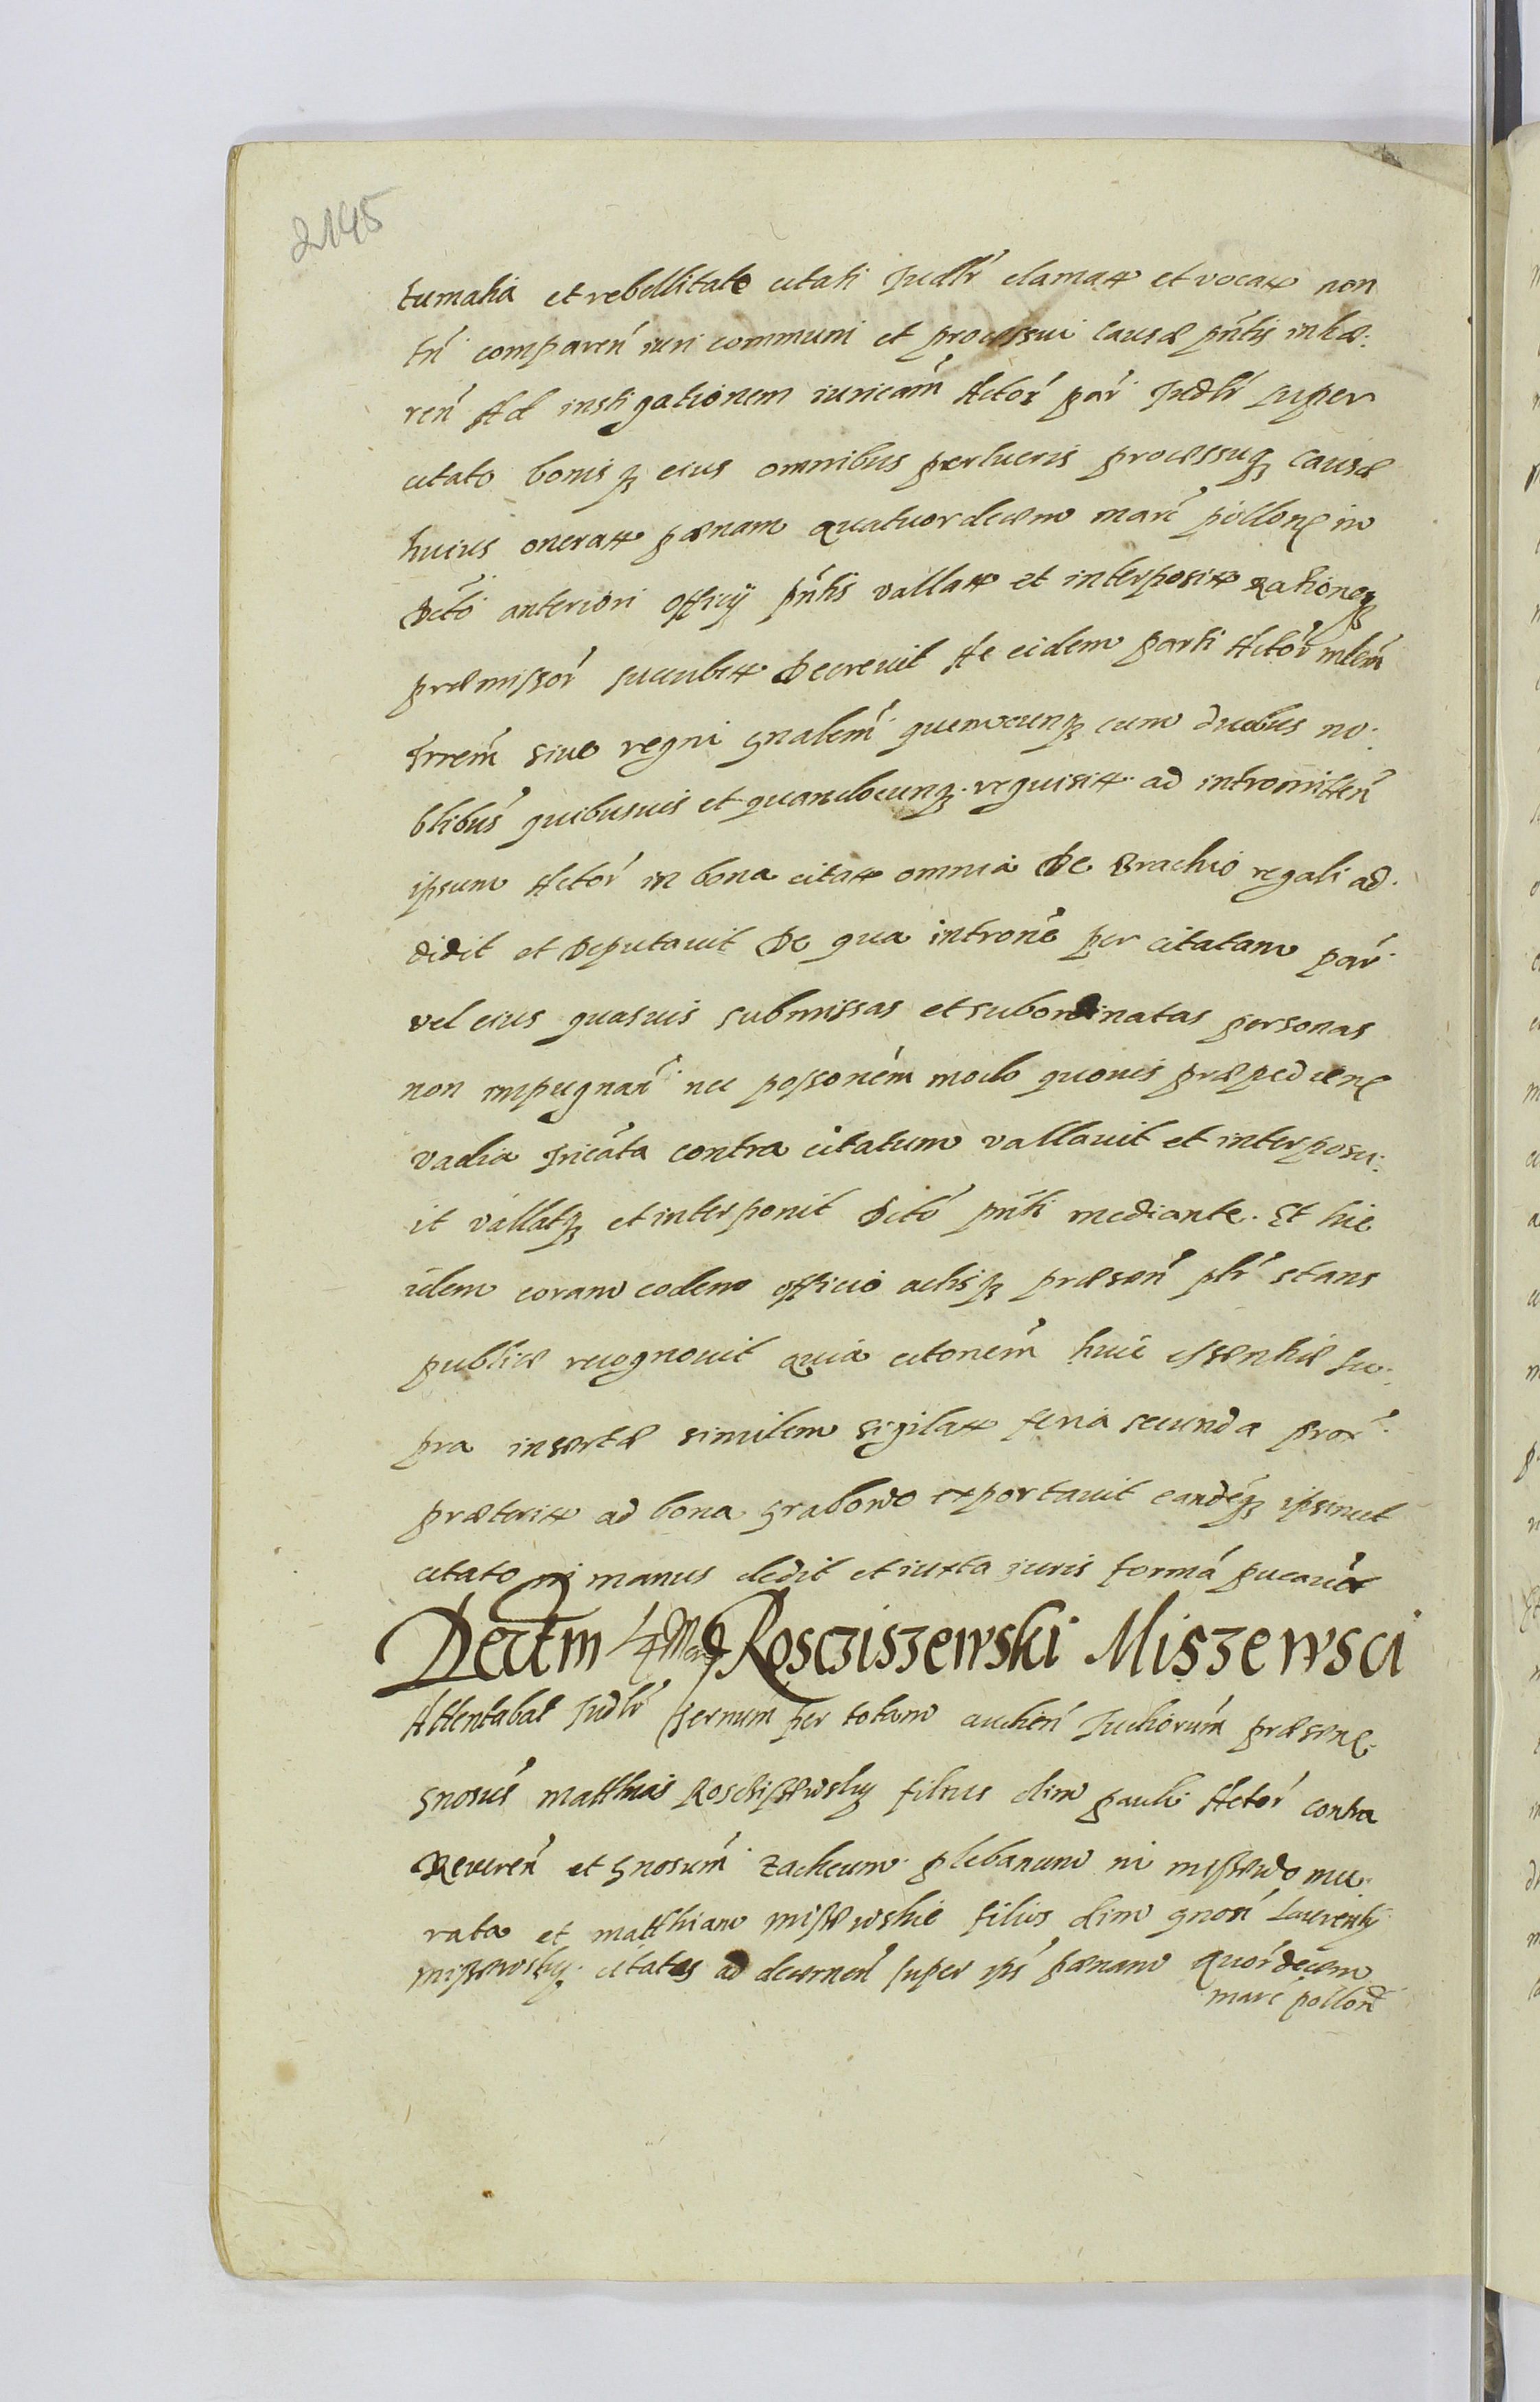 2145
tumatia et rebellitate citati Judlr clamatt et vocatt non
tn comparen iuri communi et processui causæ pntis inhæ:
ren Ad instigationem iuricam Actor par Judlr super
citato bonisq eius omnibus perlucris processuq causæ
huius oneratt pænam quatuordecem marc pollonz in
Dcto anteriori officij pntis vallatt et interpositt Rationeq
præmissor succubitt Decrevit Ac eidem parti Actor mlem
Trrem sive regni gnalem quemcunq cum duobus no:
blibus quibusvis et quandocunq requisitt ad intromitten
ipsum Actor in bona citatt omnia De Brachio regali ad:
didit et Deputavit De qua introne per citatam par
vel eius quasvis submissas et subordinatas personas
non impugnan nec possonem modo quovis præpedienz
vadia Jricata contra citatum vallavit et interposu:
it vallatq et interponit Dcto pnti mediante. Et hic
idem coram eodem officio actisq præsen plr stans
publice recognovit quia citonem huic essentiæ su:
pra insertæ similem sigilatt feria secunda prox
præteritt ad bona Grabowo exportavit eandeq ipsimet
citato in manus dedit et iuxta iuris formá
Dectm Rosciszewski Miszewsci
Attentabat Judlr ternum per totam audien Judiorum præsenz
Gnosus Matthias Roscissewsky filius olim pauli Actor contra
Reveren et Gnosum Zacheum plebanum in missewo mu:
rata et Matthiam missewskie filios olim gnosi Laurentij
missewsky citatos ad decernen super ips pænam quordecem
marc pollon